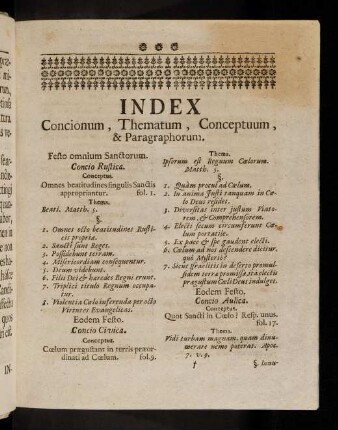 INDEX
Concionum, Thematum, Conceptuum,
& Paragraphorum.
Festo omnium Sanctorum.
Concio Rustica.
Conceptus.
Omnes beatitudines singulis Sanctis
appropriantur. fol. 1.
Thema.
Beati. Matth. 5.
§.
1. Omnes octo beatitudines Rusti-
cis propria.
2. Sancti sunt Reges.
3. Possidebunt terram.
4. Misericordiam consequentur.
5. Deum videbunt.
6. Filii Dei & haeredes Regni erunt.
7. Triplici titulo Regnum occupa-
tur.
8. Violentia Coelo inferenda per octo
Virtutes Evangelicas.
Eodem Festo.
Concio Civica.
Conceptus.
Coelum praegustant in terris praeor-
dinati ad Coelum. fol. 9.
Thema.
Ipsorum est Regnum Coelorum.
Matth. 5.
§.
1. Quàm procul ad Coelum.
2. In anima Justi tanquam in Coe-
lo Deus residet.
3. Diversitas inter justum Viato-
rem, & Comprehensorem.
4. Electi secum circumferunt Coe-
lum portatile.
5. Ex pace & spe gaudent electi.
6. Coelum ad nos descendere dicitur,
quô Mysteriô?
7. Sicut Israëlitis in deserto promul-
sidem terra promissa, ita electis
praegustum Coeli Deus indulget.
Eodem Festo.
Concio Aulica.
Conceptus.
Quot Sancti in Coelo? Resp. unus.
fol. 17.
Thema.
Vidi turbam magnam, quam dinu-
merare nemo poterat. Apoc.
7. v. 9.
† §. Innu-
IN-